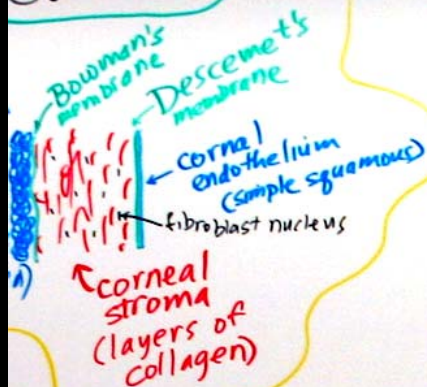 Bowman's
membrane
Descemet's
membrane
cornal
endothelium
(simple squamous)
fibroblast nucleus
corneal
stroma
(layers of
collagen)